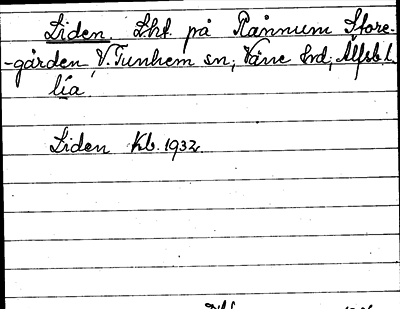 Liden. Lht. på Rånnum Store-
-gården, V. Tunhem sn; Väne hrd; Älfsb. l.
lia
Liden Kb. 1932.